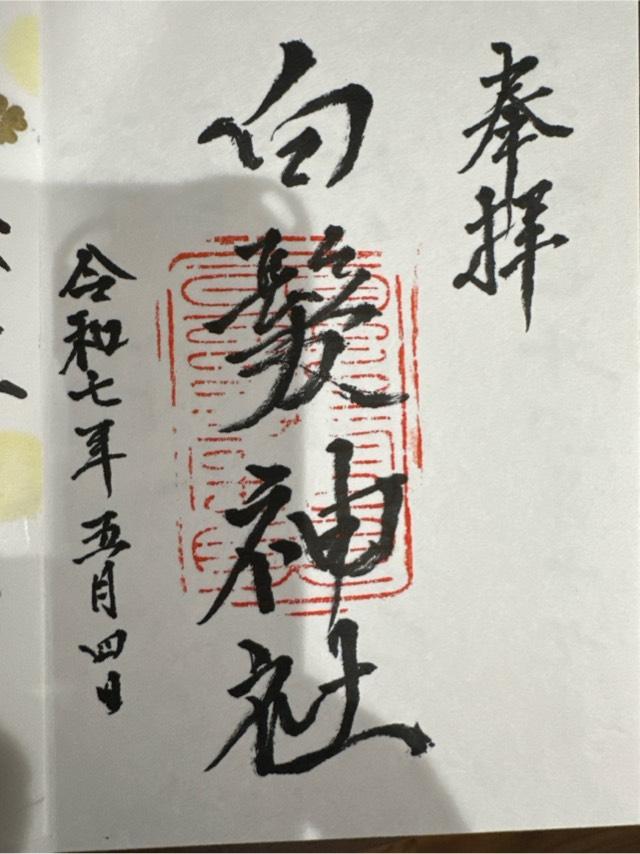 奉拝
白髪神社
令和七年五月四日